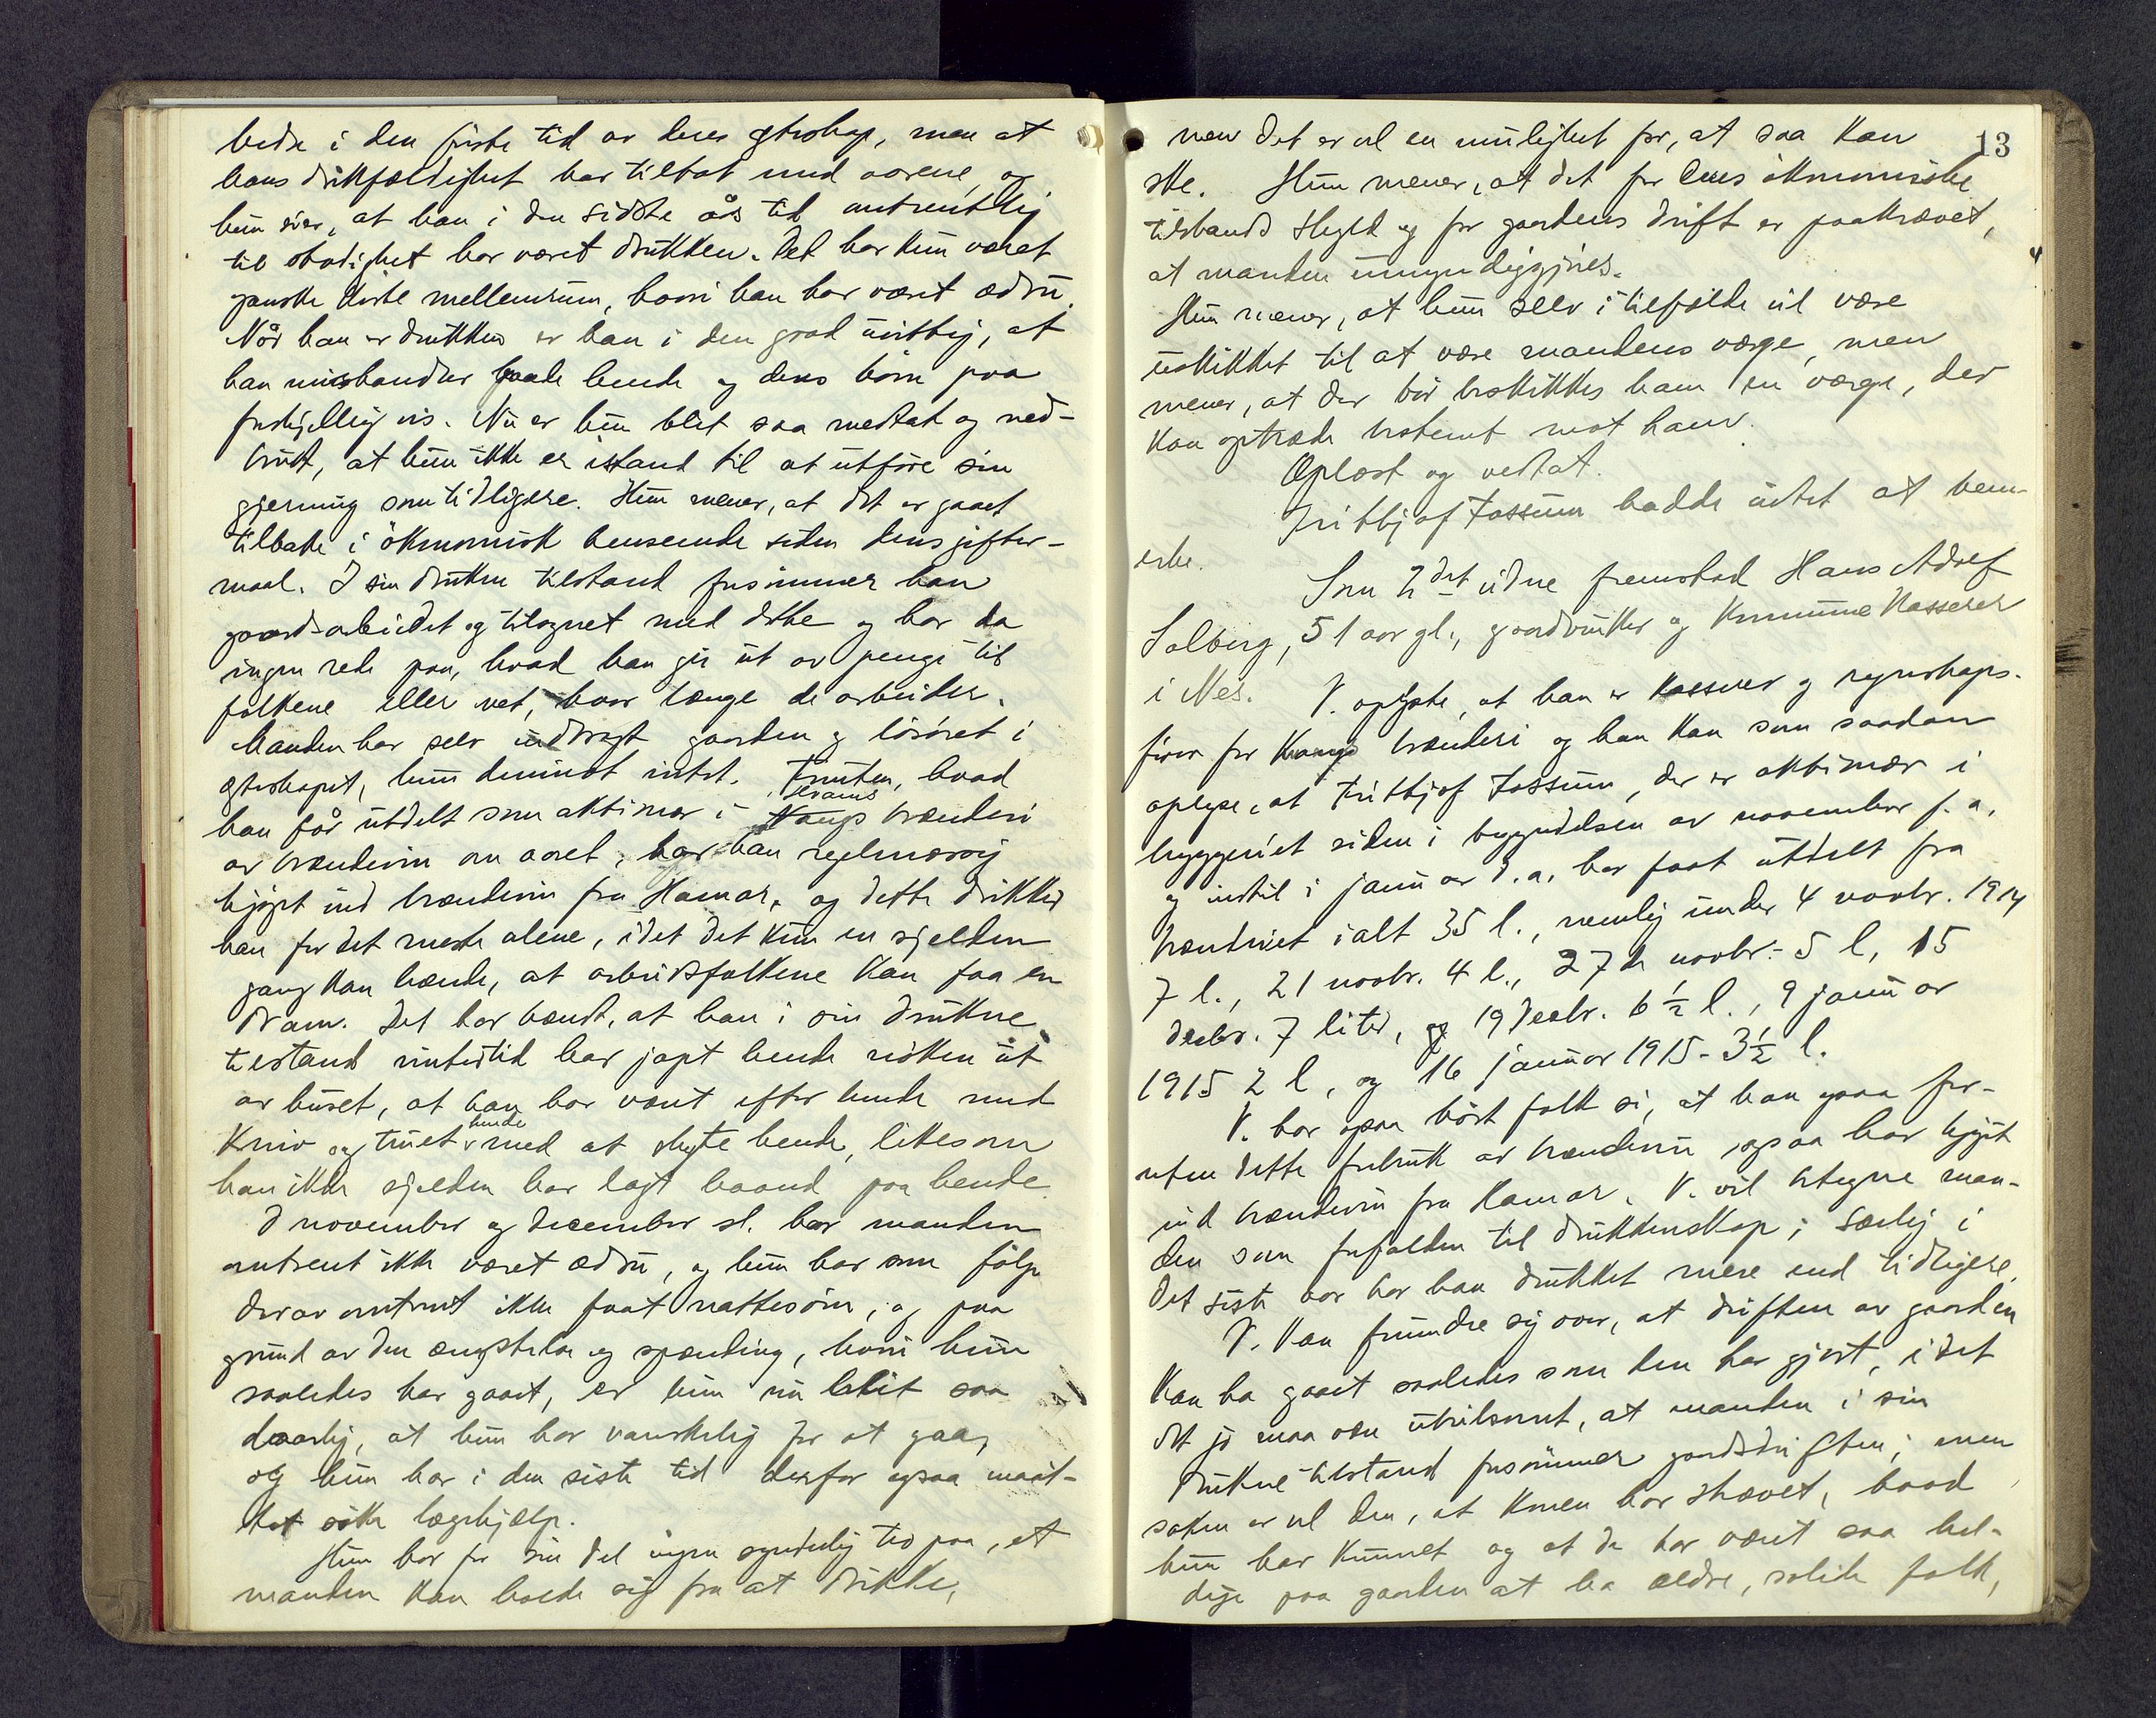 bedre i den første tid av deres egteskap, men at
hans drikfældighet har tiltat med aarene, og
hun sier, at han i den sidste års tid omtrentlig
til stadighet har været drukken. Det har kun været
ganske korte mellemrum, hvori han har været ædru.
Når han er drukken er han i den grad uvittig, at
han mishandler baade hende og deres børn paa
forskjellig vis. Nu er hun blit saa medtat og ned-
brudt, at hun ikke er istand til at utføre sin
gjerning som tidligere. Hun mener, at det er gaaet
tilbake i økonomisk henseende siden deres gifter-
maal. I sin drukne tilstand forsømmer han
gaardsarbeidet og tilsynet med dette og har da
ingen rede paa, hvad han gir ut av penge til
folkene eller vet, hvor længe de arbeider.
Manden har selv indbragt gaarden og løsøret i
egteskapet, hun derimot intet. Foruten, hvad
han får utdelt som aktionær i Haugs Strands brænderi
av brændevin om aaret, har han regelmæssig
kjøpt ind brændevin fra Hamar, og dette drikker
han for det meste alene, idet det kun en sjelden
gang kan hænde, at arbeidsfolkene kan faa en
dram. Det har hændt, at han i sin drukne
tilstand vintertid har jaget hende nøken ut
av huset, at han har været efter hende med
kniv og truet hende med at skyte hende, likesom
han ikke sjelden har lagt haand paa hende.
I november og december sl. har manden
omtrent ikke været ædru, og hun har som følge
derav omtrent ikke faat nattesøvn, og paa
grund av den ængstelse og spænding, hvori hun
saaledes har gaaet, er hun nu blit saa
daarlig, at hun har vanskelig for at gaa,
og hun har i den siste tid derfor ogsaa maat-
tet søke lægehjælp.
Hun har for sin del ingen synderlig tro paa, at
manden kan holde sig fra at drikke,
13
men det er vel en mulighet for, at saa kan
ske. Hun mener, at det for deres økonomiske
tilstands skyld og for gaardens drift er paakrævet,
at manden umyndiggjøres.
Hun mener, at hun selv i tilfælde vil være
uskikket til at være mandens værge, men
mener, at der bør beskikkes ham en værge, der
kan optræde bestemt mot ham.
Oplæst og vedtat.
Fritbjof Fossum hadde intet at bem-
erke.
Som 2det vidne fremstod Hans Adolf
Solberg, 51 aar gl., gaardbruker og kommunekasserer
i Nes. V. oplyste, at han er kasserer og regnskaps-
fører for Kaugs brænderi og han kan som saadan
oplyse, at Fritbjof Fossum, der er aktionær i
bryggeriet siden i begyndelsen av november f. a.
og indtil i januar d. a. har faat utdelt fra
brænderiet ialt 35 l., nemlig under 4 novbr. 1914
7 l., 21 novbr. 4 l., 27de novbr. 5 l, 15
decbr. 7 liter, og 19 decbr. 6 ½ l., 9 januar
1915 2 l, og 16 januar 1915 - 3½ l.
V. har ogsaa hørt folk si, at han ogsaa for-
uten dette forbruk av brændevin ogsaa har kjøpt
ind brændevin fra Hamar. V. vil betegne man-
den som forfalden til drukkenskap; særlig i
det siste aar har han drukket mere end tidligere.
V. kan forundre sig over, at driften av gaarden
kan ha gaaet saaledes som den har gjort, idet
det jo maa være utvilsomt, at manden i sin
drukne tilstand forsømmer gaardsdriften; men
saken er vel den, at konen har strævet, hvad
hun har kunnet og at de har været saa hel-
dige paa gaarden at ha ældre, solide folk,